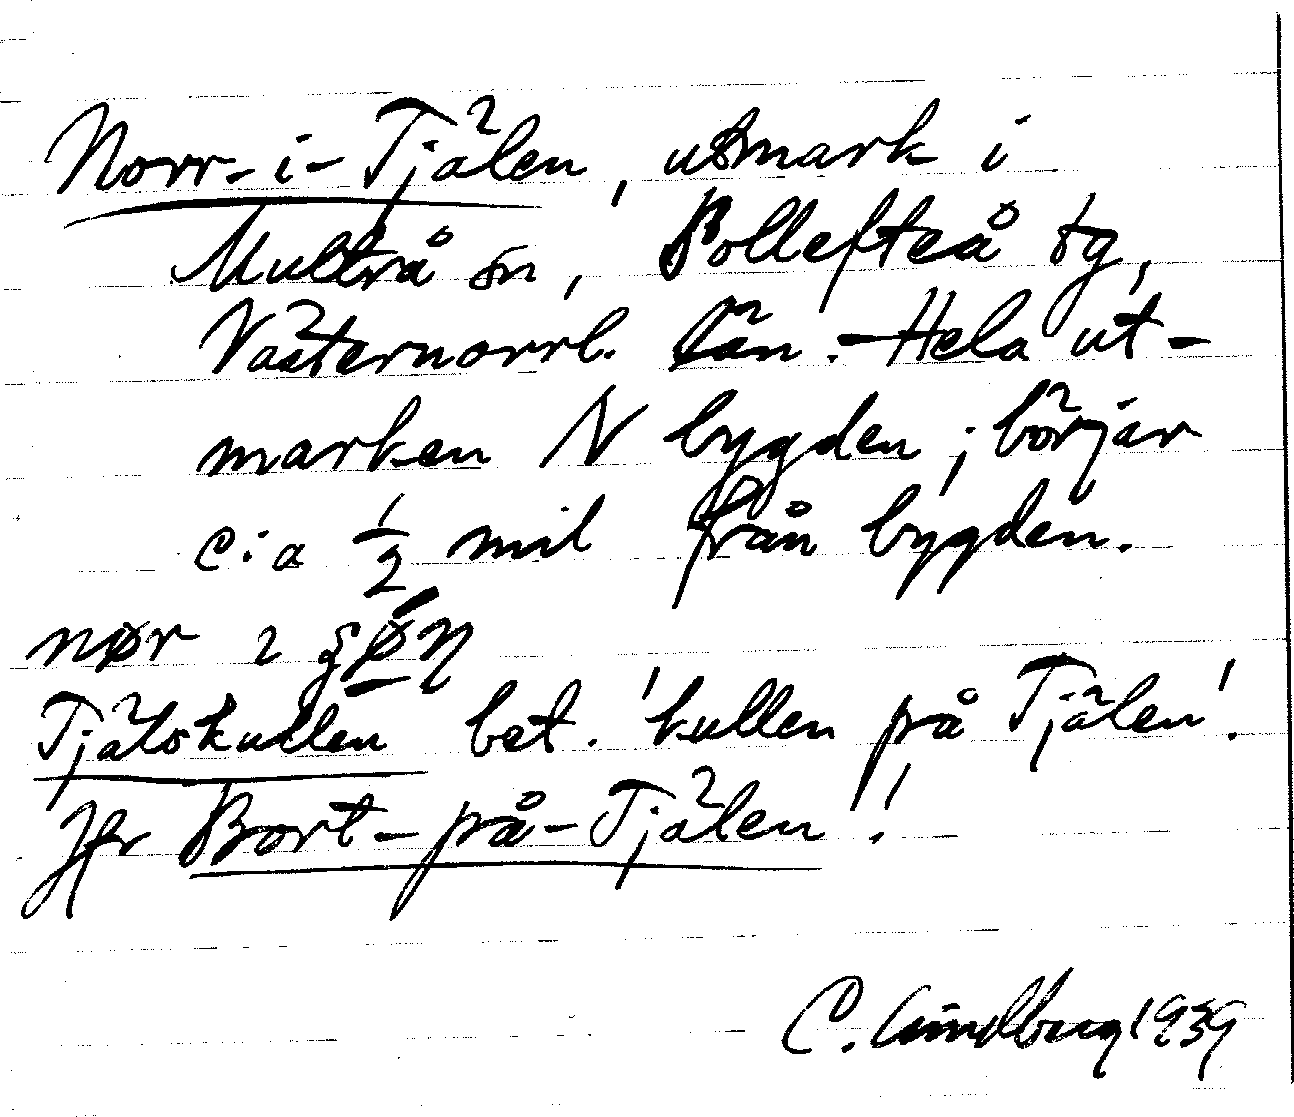 Norr-i-Tjälen, utmark i
Multrå sn, Sollefteå tg,
Västernorrl. län. - Hela ut-
marken N bygden; börjar
c:a 1/2 mil från bygden.
nør
Tjälskullen bet. 'kullen på Tjälen'.
Jfr Bort-på-Tjälen!
C. Lindberg 1939